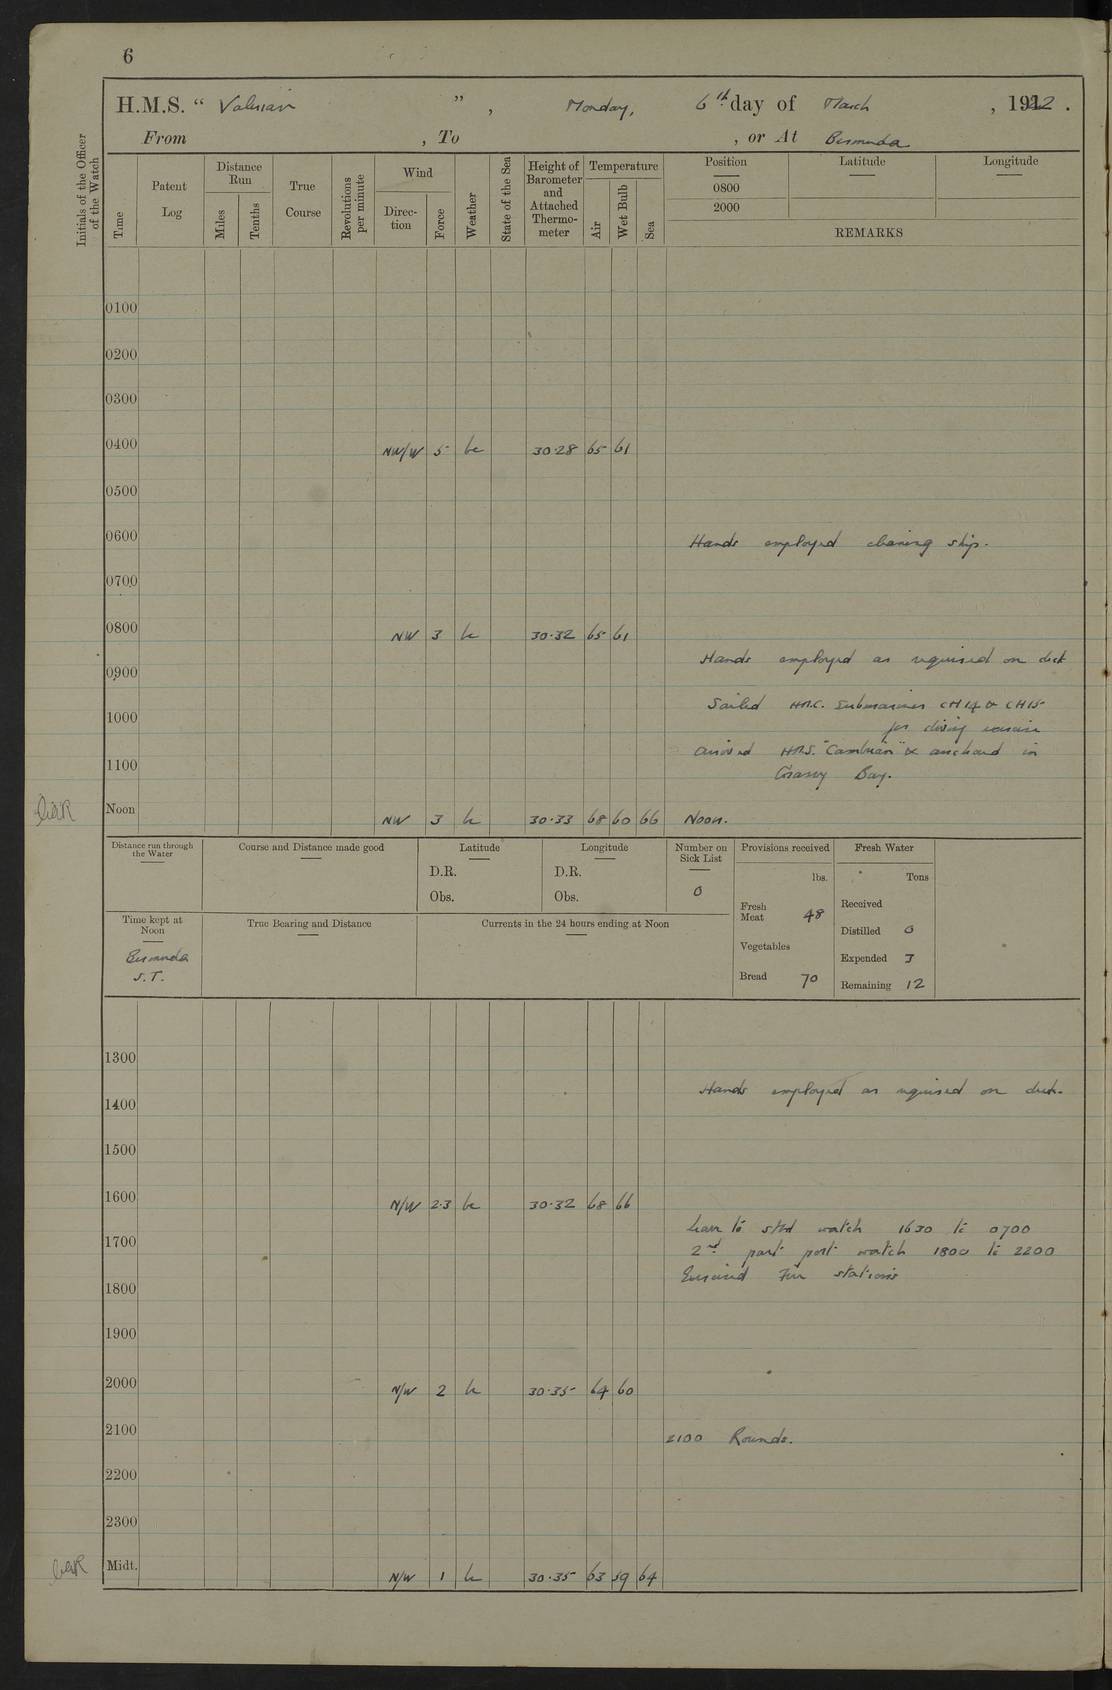 6
H.M.S. “ Valerian ” , Monday, 6th day of March , 1922 .
From , To , or At Bermuda
Initials of the Officer of the Watch
Time
Patent Log
Distance Run
Miles
Tenths
True Course
Revolutions per minute
Wind
Direc-tion
Force
Weather
State of the Sea
Height of Barometer and Attached Thermo-meter
Temperature
Air
Wet Bulb
Sea
Position
0800
2000
Latitude
Longitude
REMARKS
0100
0200
0300
0400 NW/W 5 bc 30.28 65 61
0500
0600 Hands employed cleaning ship.
0700
0800 NW 3 bc 30.32 65 61
Hands employed as required on deck
0900
Sailed H.M.C. Submarines CH14 & CH15
1000
for diving exercise
arrived H.M.S. "Cambrian" & anchored in
1100
Grassy Bay.
Noon NW 3 bc 30.33 68 60 66 Noon.
Distance run through the Water
Course and Distance made good
Latitude
D.R.
Obs.
Longitude
D.R.
Obs.
Number on Sick List
0
Provisions received
lbs.
Fresh Meat 48
Vegetables
Bread 70
Fresh Water
Tons
Received
Distilled 0
Expended 3
Remaining 12
Time kept at Noon
Bermuda
S.T.
True Bearing and Distance
Currents in the 24 hours ending at Noon
1300
Hands employed as required on deck.
1400
1500
1600 N/W 2.3 bc 30.32 68 66
Leave to stbd watch 1630 to 0700
1700
2nd part port watch 1800 to 2200
Exercised Fire stations
1800
1900
2000 N/W 2 bc 30.35 64 60
2100
2100 Rounds.
2200
2300
Midt. N/W 1 bc 30.35 63 59 64